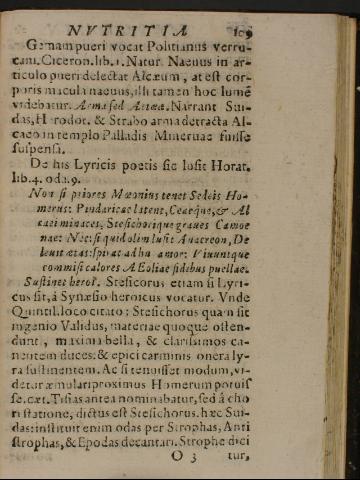 NVTRITIA 109
Gemam pueri vocat Politianus verru-
cam. Ciceron. lib. 1. Natur Naeuus in ar-
ticulo pueri delectat Alcæum, at est cor-
poris macula naeuus, illi tamen hoc lumē
videbatur. Arma sed Narrant Sui-
das, Herodot. & Strabo arma detracta Al-
caeo in templo Palladis Mineruae fuisse
suspensa.
De his Lyricis poetis sic lusit Horat.
lib. 4. oda. 9.
Non si priores Mæonius tenet Sedeis Ho-
merus: Pindaricae latent, Ceaeque, & Al
caei minaces, Stesichorique graues Camoe
nae: Nec si quid olim lusit Anacreon, De
leuit ætas: spirat adhu amor: Viuuntque
commissi calores AEoliae fidibus puellae.
Sustinet heroi. Stesicorus etiam si Lyri-
cus sit, à Synæsio heroicus vocatur. Vnde
Quintil. loco citato: Stesichorus quam sit
ingenio Validus, materiae quoque osten-
dunt, maxima bella, & clarissimos ca-
nentem duces: & epici carminis onera ly-
ra sustinentem. Ac si tenuisset modum, vi-
detur æmulari proximus Homerum potuis
se. cæt. Tisias antea nominabatur, sed â cho
ri statione, dictus est Stesichorus. hæc Sui-
das: instituit enim odas per Strophas, Anti
strophas, & Epodas decantari. Strophe dici
O 3 tur,